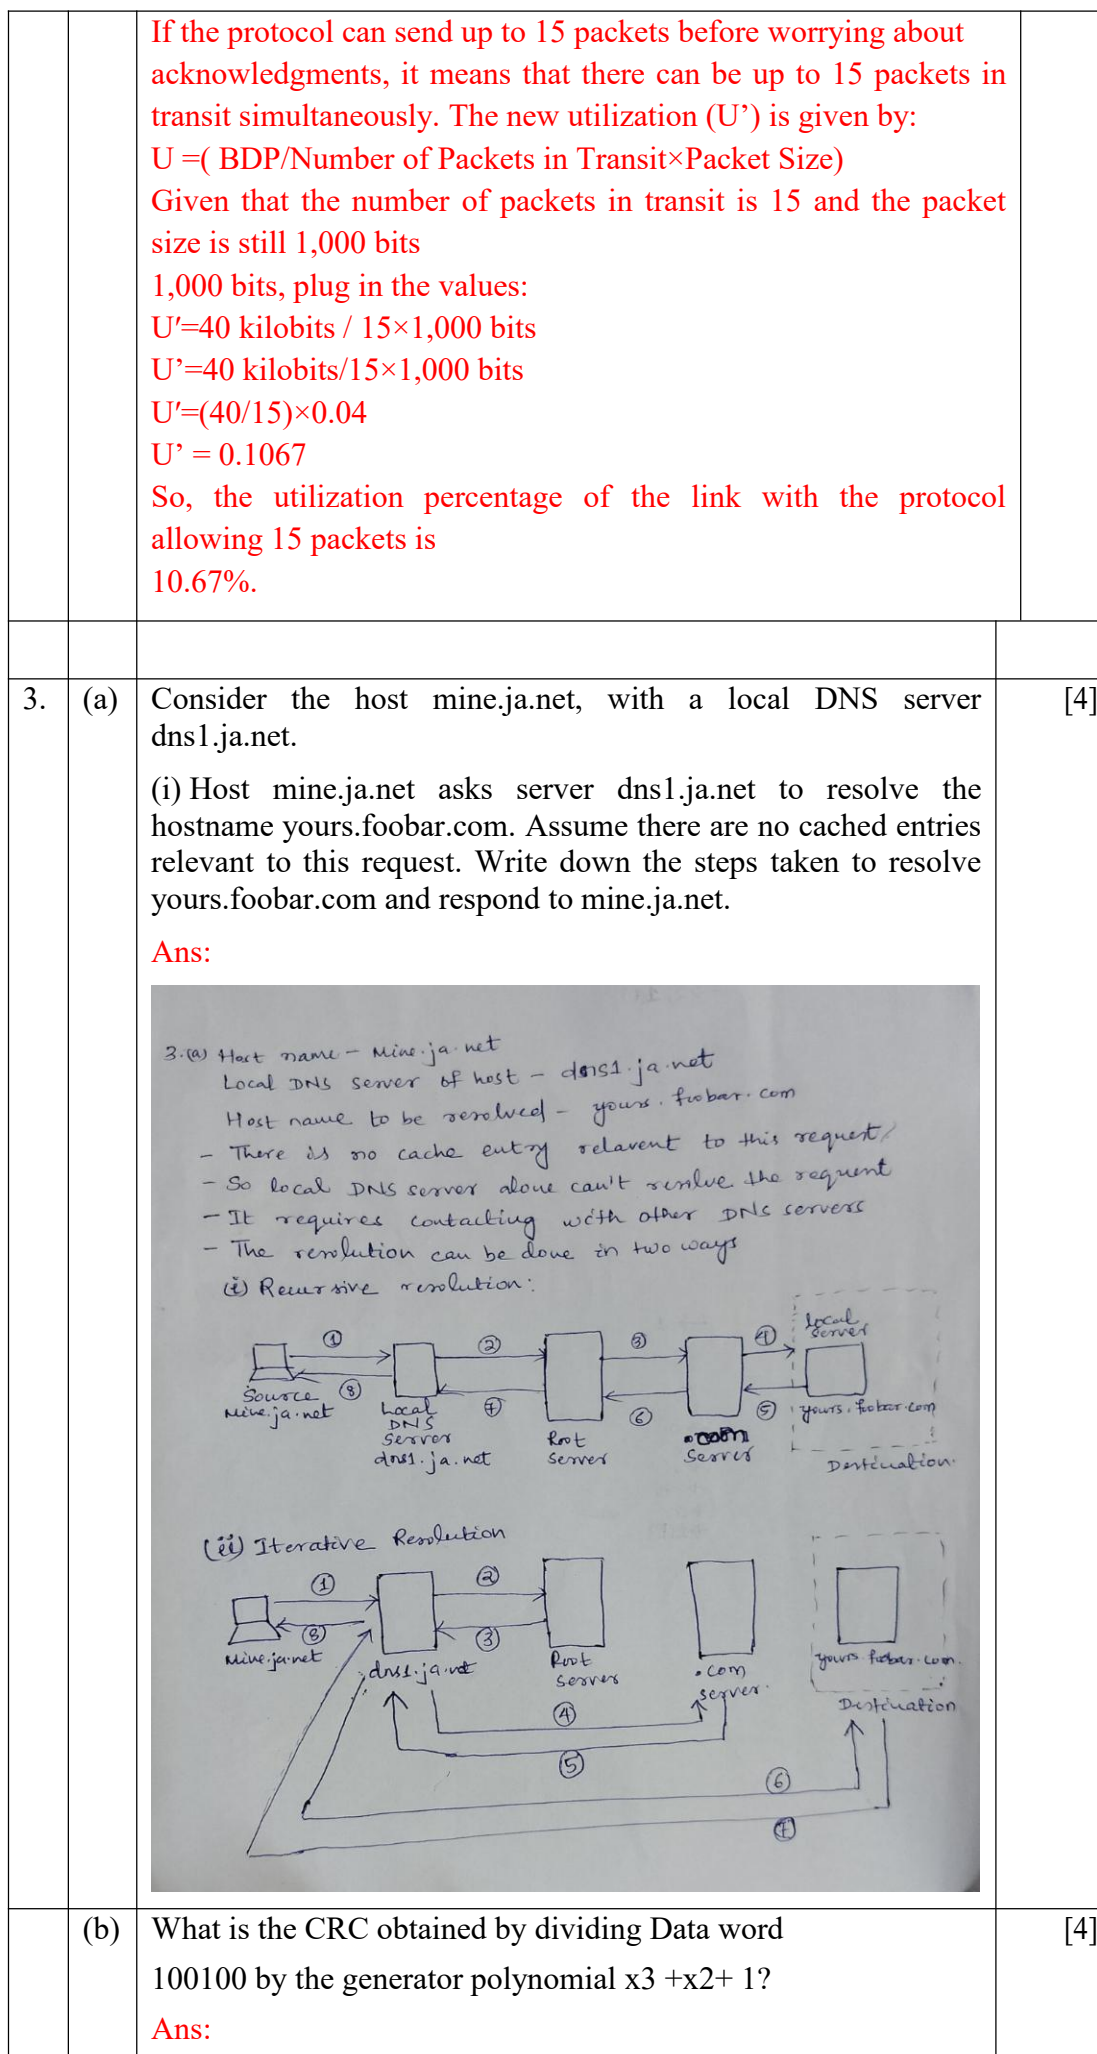 If the protocol can send up to 15 packets before worrying about
acknowledgments, it means that there can be up to 15 packets in
transit simultaneously. The new utilization (U’) is given by:
U =( BDP/Number of Packets in Transit×Packet Size)
Given that the number of packets in transit is 15 and the packet
size is still 1,000 bits
1,000 bits, plug in the values:
U′=40 kilobits / 15×1,000 bits
U’=40 kilobits/15×1,000 bits
U′=(40/15)×0.04
U’ = 0.1067
So, the utilization percentage of the link with the protocol
allowing 15 packets is
10.67%.
3. (a) Consider the host mine.ja.net, with a local DNS server [4]
dns1.ja.net.
(i) Host mine.ja.net asks server dns1.ja.net to resolve the
hostname yours.foobar.com. Assume there are no cached entries
relevant to this request. Write down the steps taken to resolve
yours.foobar.com and respond to mine.ja.net.
Ans:
3.(a) Host name - Mine.ja.net
Local DNS server of host - dns1.ja.net
Host name to be resolved - yours.foobar.com
- There is no cache entry relavent to this request
- So local DNS server alone can't resolve the request
- It requires contacting with other DNS servers
- The resolution can be done in two ways
(i) Recursive resolution:
① ② ③ ④ local
server
⑧ ⑦ ⑥ ⑤
Source
Mine.ja.net
Local
DNS
Server
dns1.ja.net
Root
Server
.com
Server
yours.foobar.com
Destination.
(ii) Iterative Resolution
① ②
⑧ ③
Mine.ja.net
dns1.ja.net
Root
Server
.com
server.
yours.foobar.com.
Destination
④
⑤
⑥
⑦
(b) What is the CRC obtained by dividing Data word [4]
100100 by the generator polynomial x3 +x2+ 1?
Ans: